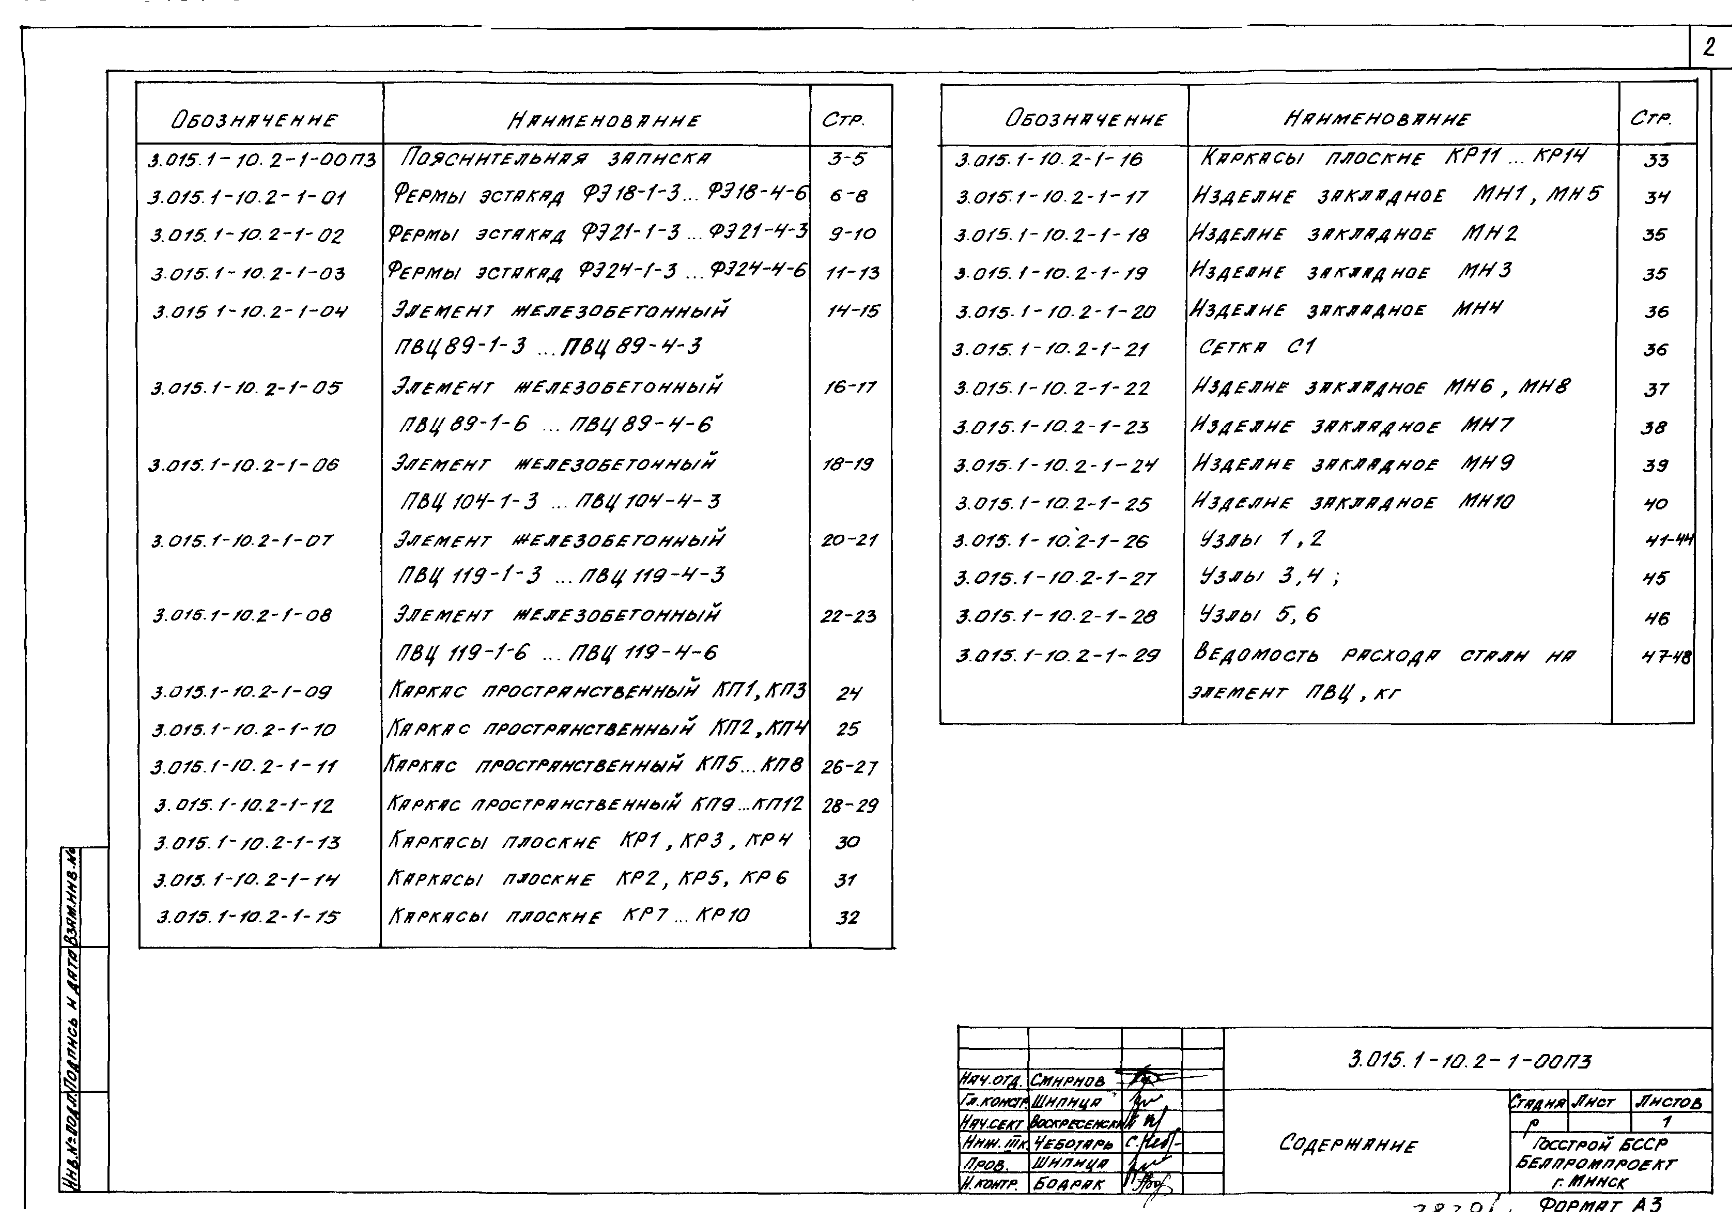 2
Обозначение Наименование Стр.
3.015.1-10.2-1-00ПЗ Пояснительная записка 3-5
3.015.1-10.2-1-01 Фермы эстакад ФЭ18-1-3...ФЭ18-4-6 6-8
3.015.1-10.2-1-02 Фермы эстакад ФЭ21-1-3...ФЭ21-4-3 9-10
3.015.1-10.2-1-03 Фермы эстакад ФЭ24-1-3...ФЭ24-4-6 11-13
3.015 1-10.2-1-04 Элемент железобетонный 14-15
ПВЦ 89-1-3 ...ПВЦ 89-4-3
3.015.1-10.2-1-05 Элемент железобетонный 16-17
ПВЦ 89-1-6 ...ПВЦ 89-4-6
3.015.1-10.2-1-06 Элемент железобетонный 18-19
ПВЦ 104-1-3 ...ПВЦ 104-4-3
3.015.1-10.2-1-07 Элемент железобетонный 20-21
ПВЦ 119-1-3 ...ПВЦ 119-4-3
3.015.1-10.2-1-08 Элемент железобетонный 22-23
ПВЦ 119-1-6 ...ПВЦ 119-4-6
3.015.1-10.2-1-09 Каркас пространственный КП1, КП3 24
3.015.1-10.2-1-10 Каркас пространственный КП2, КП4 25
3.015.1-10.2-1-11 Каркас пространственный КП5...КП8 26-27
3.015.1-10.2-1-12 Каркас пространственный КП9...КП12 28-29
3.015.1-10.2-1-13 Каркасы плоские КР1, КР3, КР4 30
3.015.1-10.2-1-14 Каркасы плоские КР2, КР5, КР6 31
3.015.1-10.2-1-15 Каркасы плоские КР7...КР10 32
Обозначение Наименование Стр.
3.015.1-10.2-1-16 Каркасы плоские КР11...КР14 33
3.015.1-10.2-1-17 Изделие закладное МН1, МН5 34
3.015.1-10.2-1-18 Изделие закладное МН2 35
3.015.1-10.2-1-19 Изделие закладное МН3 35
3.015.1-10.2-1-20 Изделие закладное МН4 36
3.015.1-10.2-1-21 Сетка С1 36
3.015.1-10.2-1-22 Изделие закладное МН6, МН8 37
3.015.1-10.2-1-23 Изделие закладное МН7 38
3.015.1-10.2-1-24 Изделие закладное МН9 39
3.015.1-10.2-1-25 Изделие закладное МН10 40
3.015.1-10.2-1-26 Узлы 1, 2 41-44
3.015.1-10.2-1-27 Узлы 3, 4 ; 45
3.015.1-10.2-1-28 Узлы 5, 6 46
3.015.1-10.2-1-29 Ведомость расхода стали на 47-48
элемент ПВЦ, кг
Инв.№подл. Подпись и дата Взам.инв.№
3.015.1-10.2-1-00ПЗ
Нач.отд. Смирнов
Гл.констр. Шипица
Нач.сект Воскресенский
Инж. IIк. Чеботарь С.Чеб
Пров. Шипица
Н.контр. Бодрак
Содержание
Стадия Лист Листов
Р 1
Госстрой БССР
Белпромпроект
г. Минск
Формат А3